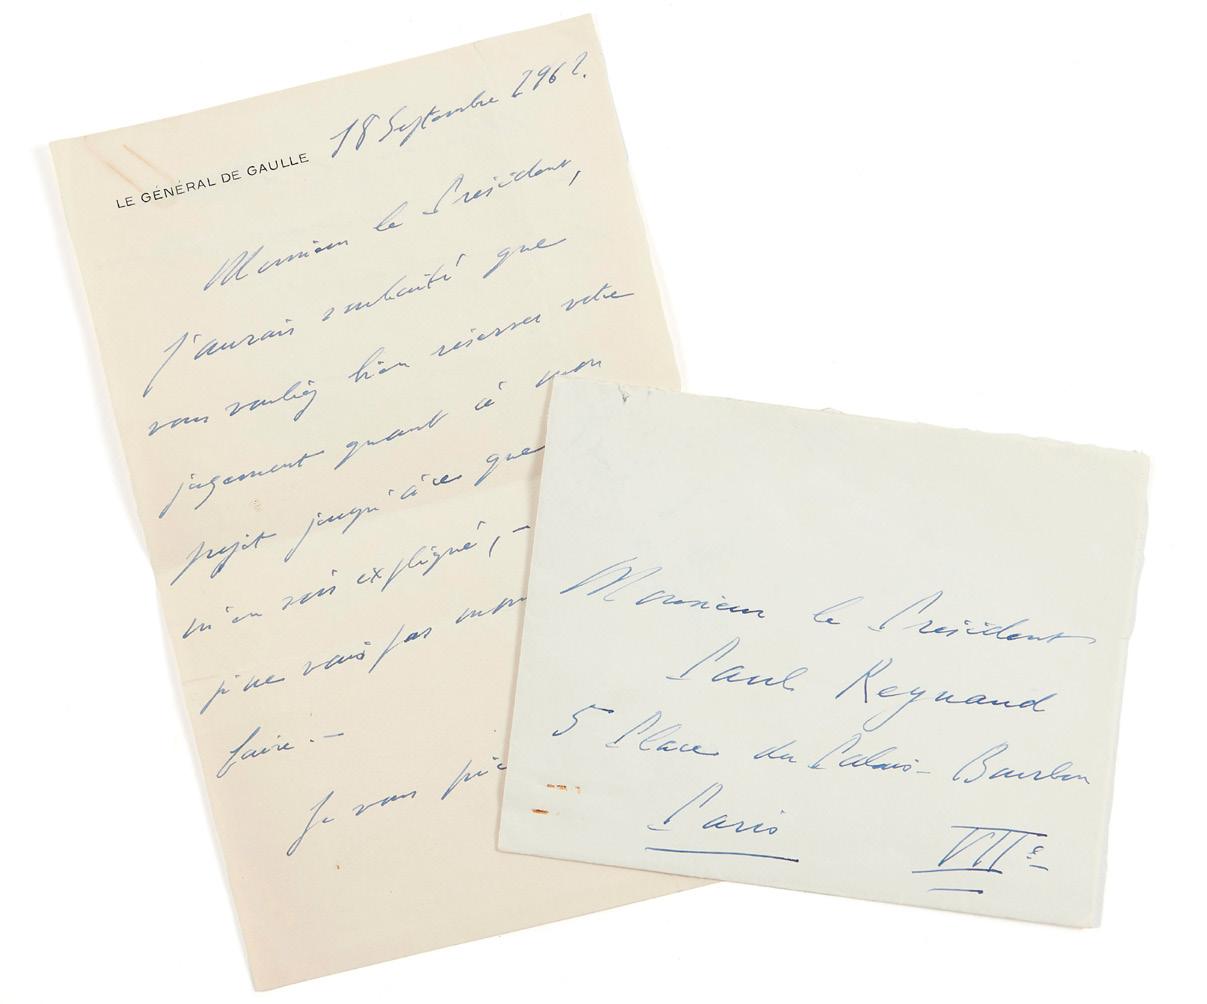 LE GÉNÉRAL DE GAULLE
18 Septembre 1962.
Monsieur le Président,
J'aurais souhaité que
vous vouliez bien réserver votre
jugement quant à mon
projet jusqu'à ce que
m'en sois expliqué, –
je ne vais pas
faire. –
Je vous
Monsieur le Président
Paul Reynaud
5 Place du Palais-Bourbon
Paris VIIe